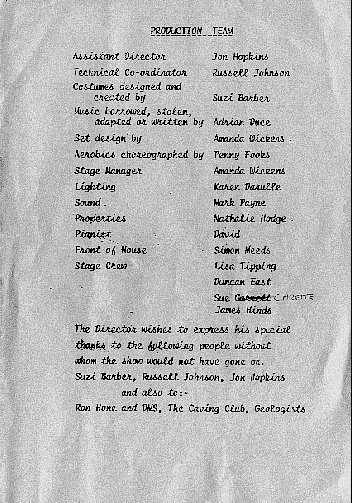 PRODUCTION TEAM
Assistant Director Jon Hopkins
Technical Co-ordinator Russell Johnson
Costumes designed and
created by Suzi Barber
Music borrowed, stolen,
adapted or written by Adrian
Set design by Amanda Wickens
Aerobics choreographed by Penny Fooks
Stage Manager Amanda Wickens
Lighting Karen
Sound Mark Payne
Properties Nathalie Hodge
Pianist David
Front of House Simon Meeds
Stage Crew Lisa Tipping
Duncan East
Sue
James Hinds
The Director wishes to express his special
thanks to the following people without
whom the show would not have gone on.
Suzi Barber, Russell Johnson, Jon Hopkins
and also to:-
Ron Hone and DMS, The Caving Club, Geologists